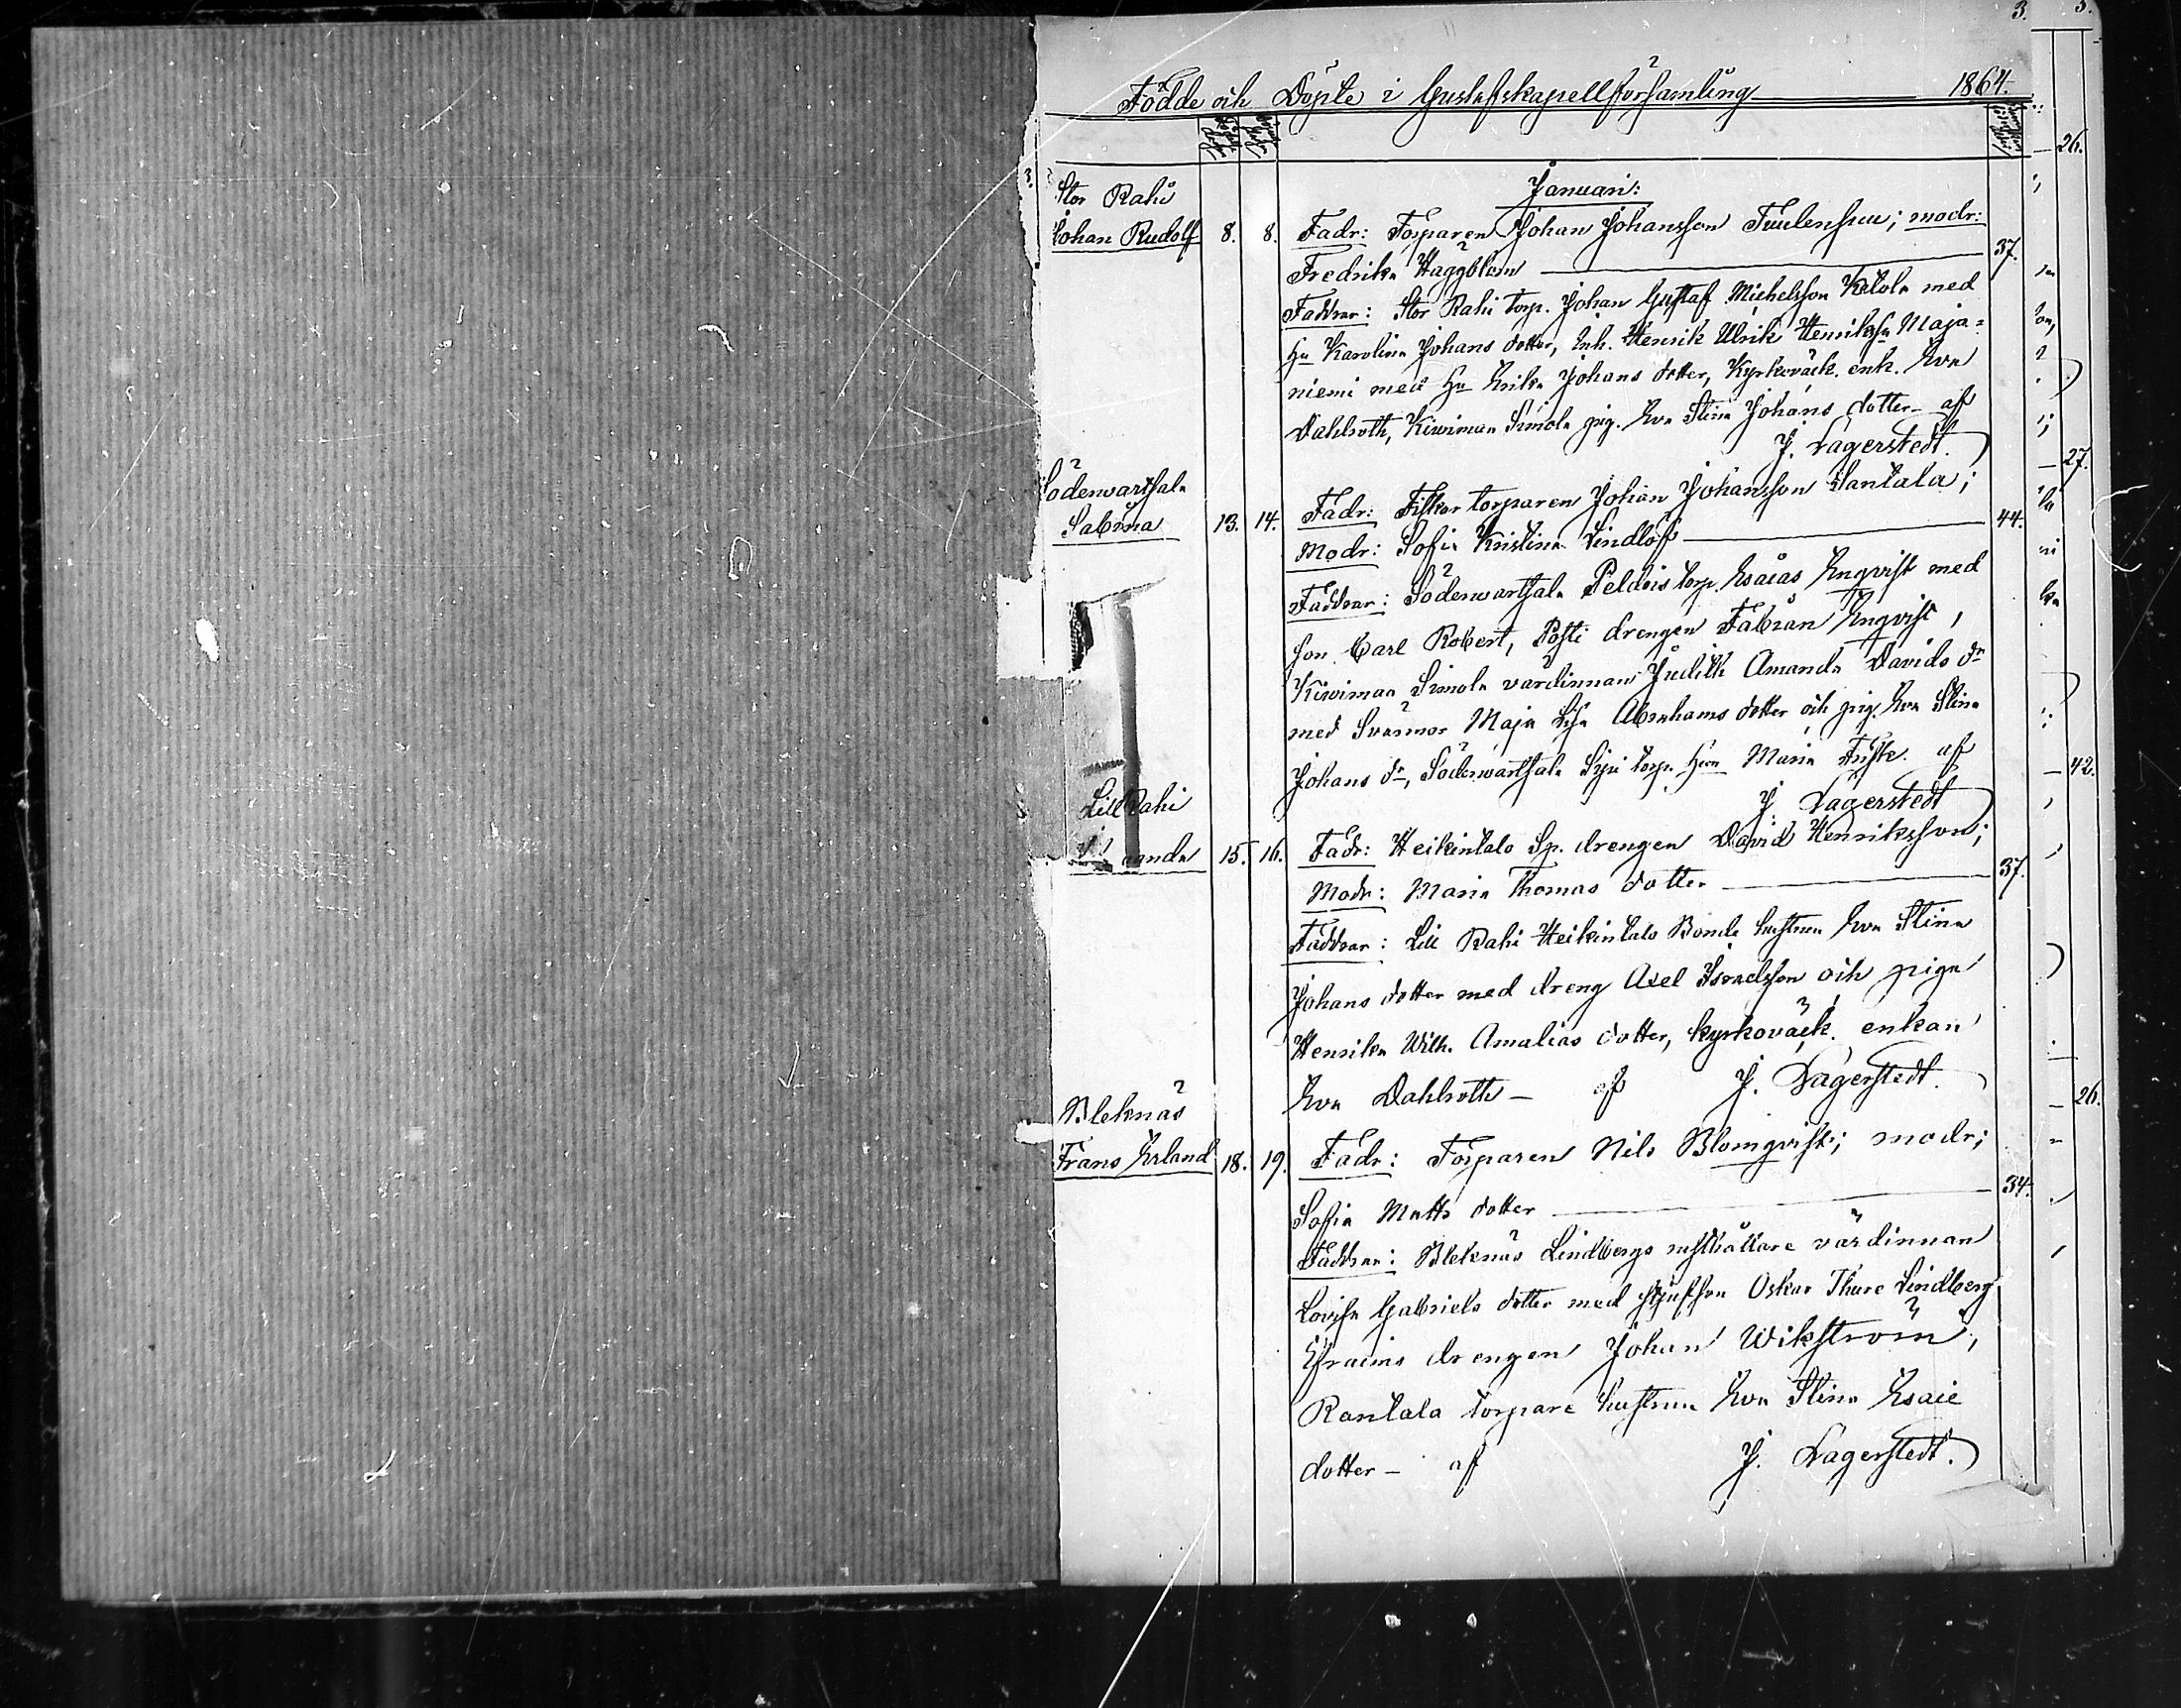 3.
Födde och Döpte i Gustafs kapellförsamling 1864.
Januari:
Stor Rahi
Johan Rudolf 8. 8. Fadr: Torparen Johan Johansson Tuulensuu; modr:
Fredrika Häggblom 37.
Faddrar: Stor Rahi torp. Johan Gustaf Michelsson Kelola med
Hu Karolina Johans dotter, Inh. Henrik Ulrik Henrikss Maja=
niemi med Hu Erika Johans dotter, Kyrkobäck. enk. Eva
Dahlroth, Kiwimaa Simola pig. Eva Stina Johans dotter - af
J. Lagerstedt.
Södervartsala
Sabina 13. 14. Fadr: Fiskar torparen Johan Johansson Santala;
Modr: Sofia Kristina Lindlöf 44.
Faddrar: Södervartsala Peldois torp. Esaias Engvist med
son Carl Robert, Posti drengen Fabian Engvist,
Kiwimaa Simola värdinnan Judith Amanda Davids dr
med Svärmor Maja Lisa Abrahams dotter och pig. Eva Stina
Johans dr, Södervartsala torp. Hun Maria Fisk. af
J. Lagerstedt
Lill Rahi
anda 15. 16. Fadr: Heikintalo Sp. drengen David Henriksson;
Modr: Maria Thomas dotter 37.
Faddrar: Lill Rahi Heikintalo Bonde hustrun Eva Stina
Johans dotter med dreng Axel Israelsson och piga
Henrika Wilh. Amalias dotter, kyrkobäck. enkan
Eva Dahlroth - af J. Lagerstedt.
Bleknäs
Frans Erland 18. 19. Fadr: Torparen Nils Blomqvist; modr;
Sofia Matts dotter 34.
Faddrar: Bleknäs Lindbergs rusthållare värdinnan
Lovisa Gabriels dotter med styfson Oskar Thure Lindberg
Efraims drengen Johan Wikström,
Rantala torpare hustrun Eva Stina Esaie
dotter - af J. Lagerstedt.
3.
26.
27.
42.
26.